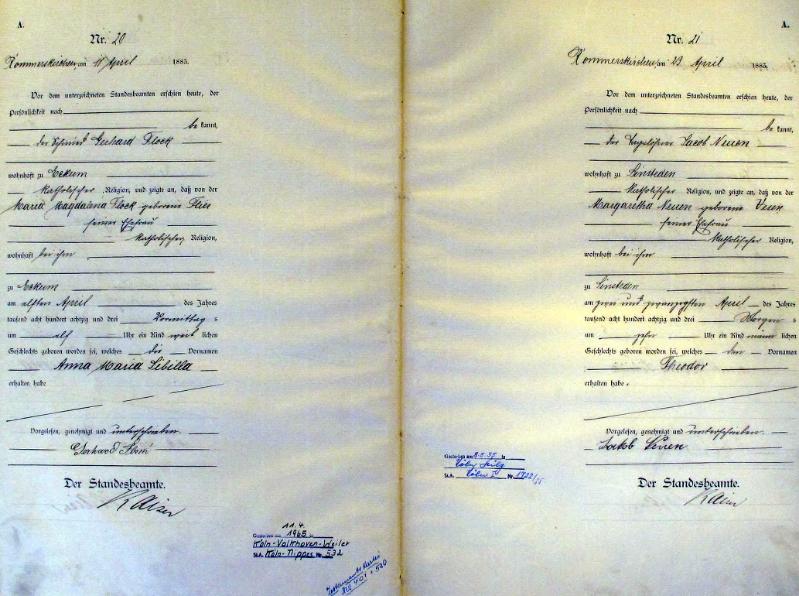 A.
Nr. 20
Rommerskirchen, am 11 April 1883.
Vor dem unterzeichneten Standesbeamten erschien heute, der
Persönlichkeit nach
bekannt,
der Schmied Gerhard Flock
wohnhaft zu Eckum
katholischer Religion, und zeigte an, daß von der
Maria Magdalena Flock geborene
seiner Ehefrau
katholischer Religion,
wohnhaft bei ihm
zu Eckum
am elften April des Jahres
tausend acht hundert achtzig und drei Vormittags
um elf Uhr ein Kind weiblichen
Geschlechts geboren worden sei, welches die Vornamen
Anna Maria Sibilla
erhalten habe
Vorgelesen, genehmigt und unterschrieben
Gerhard
Der Standesbeamte.
Kaiser
Gestorben am 11.4.1965 in
Köln-Volkhoven-Weiler
StA. Köln-Nippes Nr. 532
A.
Nr. 21
Rommerskirchen, am 23 April 1883.
Vor dem unterzeichneten Standesbeamten erschien heute, der
Persönlichkeit nach
bekannt,
der Tagelöhner Jacob Neuen
wohnhaft zu Sinsteden
katholischer Religion, und zeigte an, daß von der
Margaretha Neuen geborene
seiner Ehefrau
katholischer Religion,
wohnhaft bei ihm
zu Sinsteden
am zwei und zwanzigsten April des Jahres
tausend acht hundert achtzig und drei Morgens
um zehn Uhr ein Kind männlichen
Geschlechts geboren worden sei, welches den Vornamen
Theodor
erhalten habe.
Vorgelesen, genehmigt und unterschrieben.
Jakob
Der Standesbeamte.
Kaiser
Gestorben am in
StA. Köln Nr.